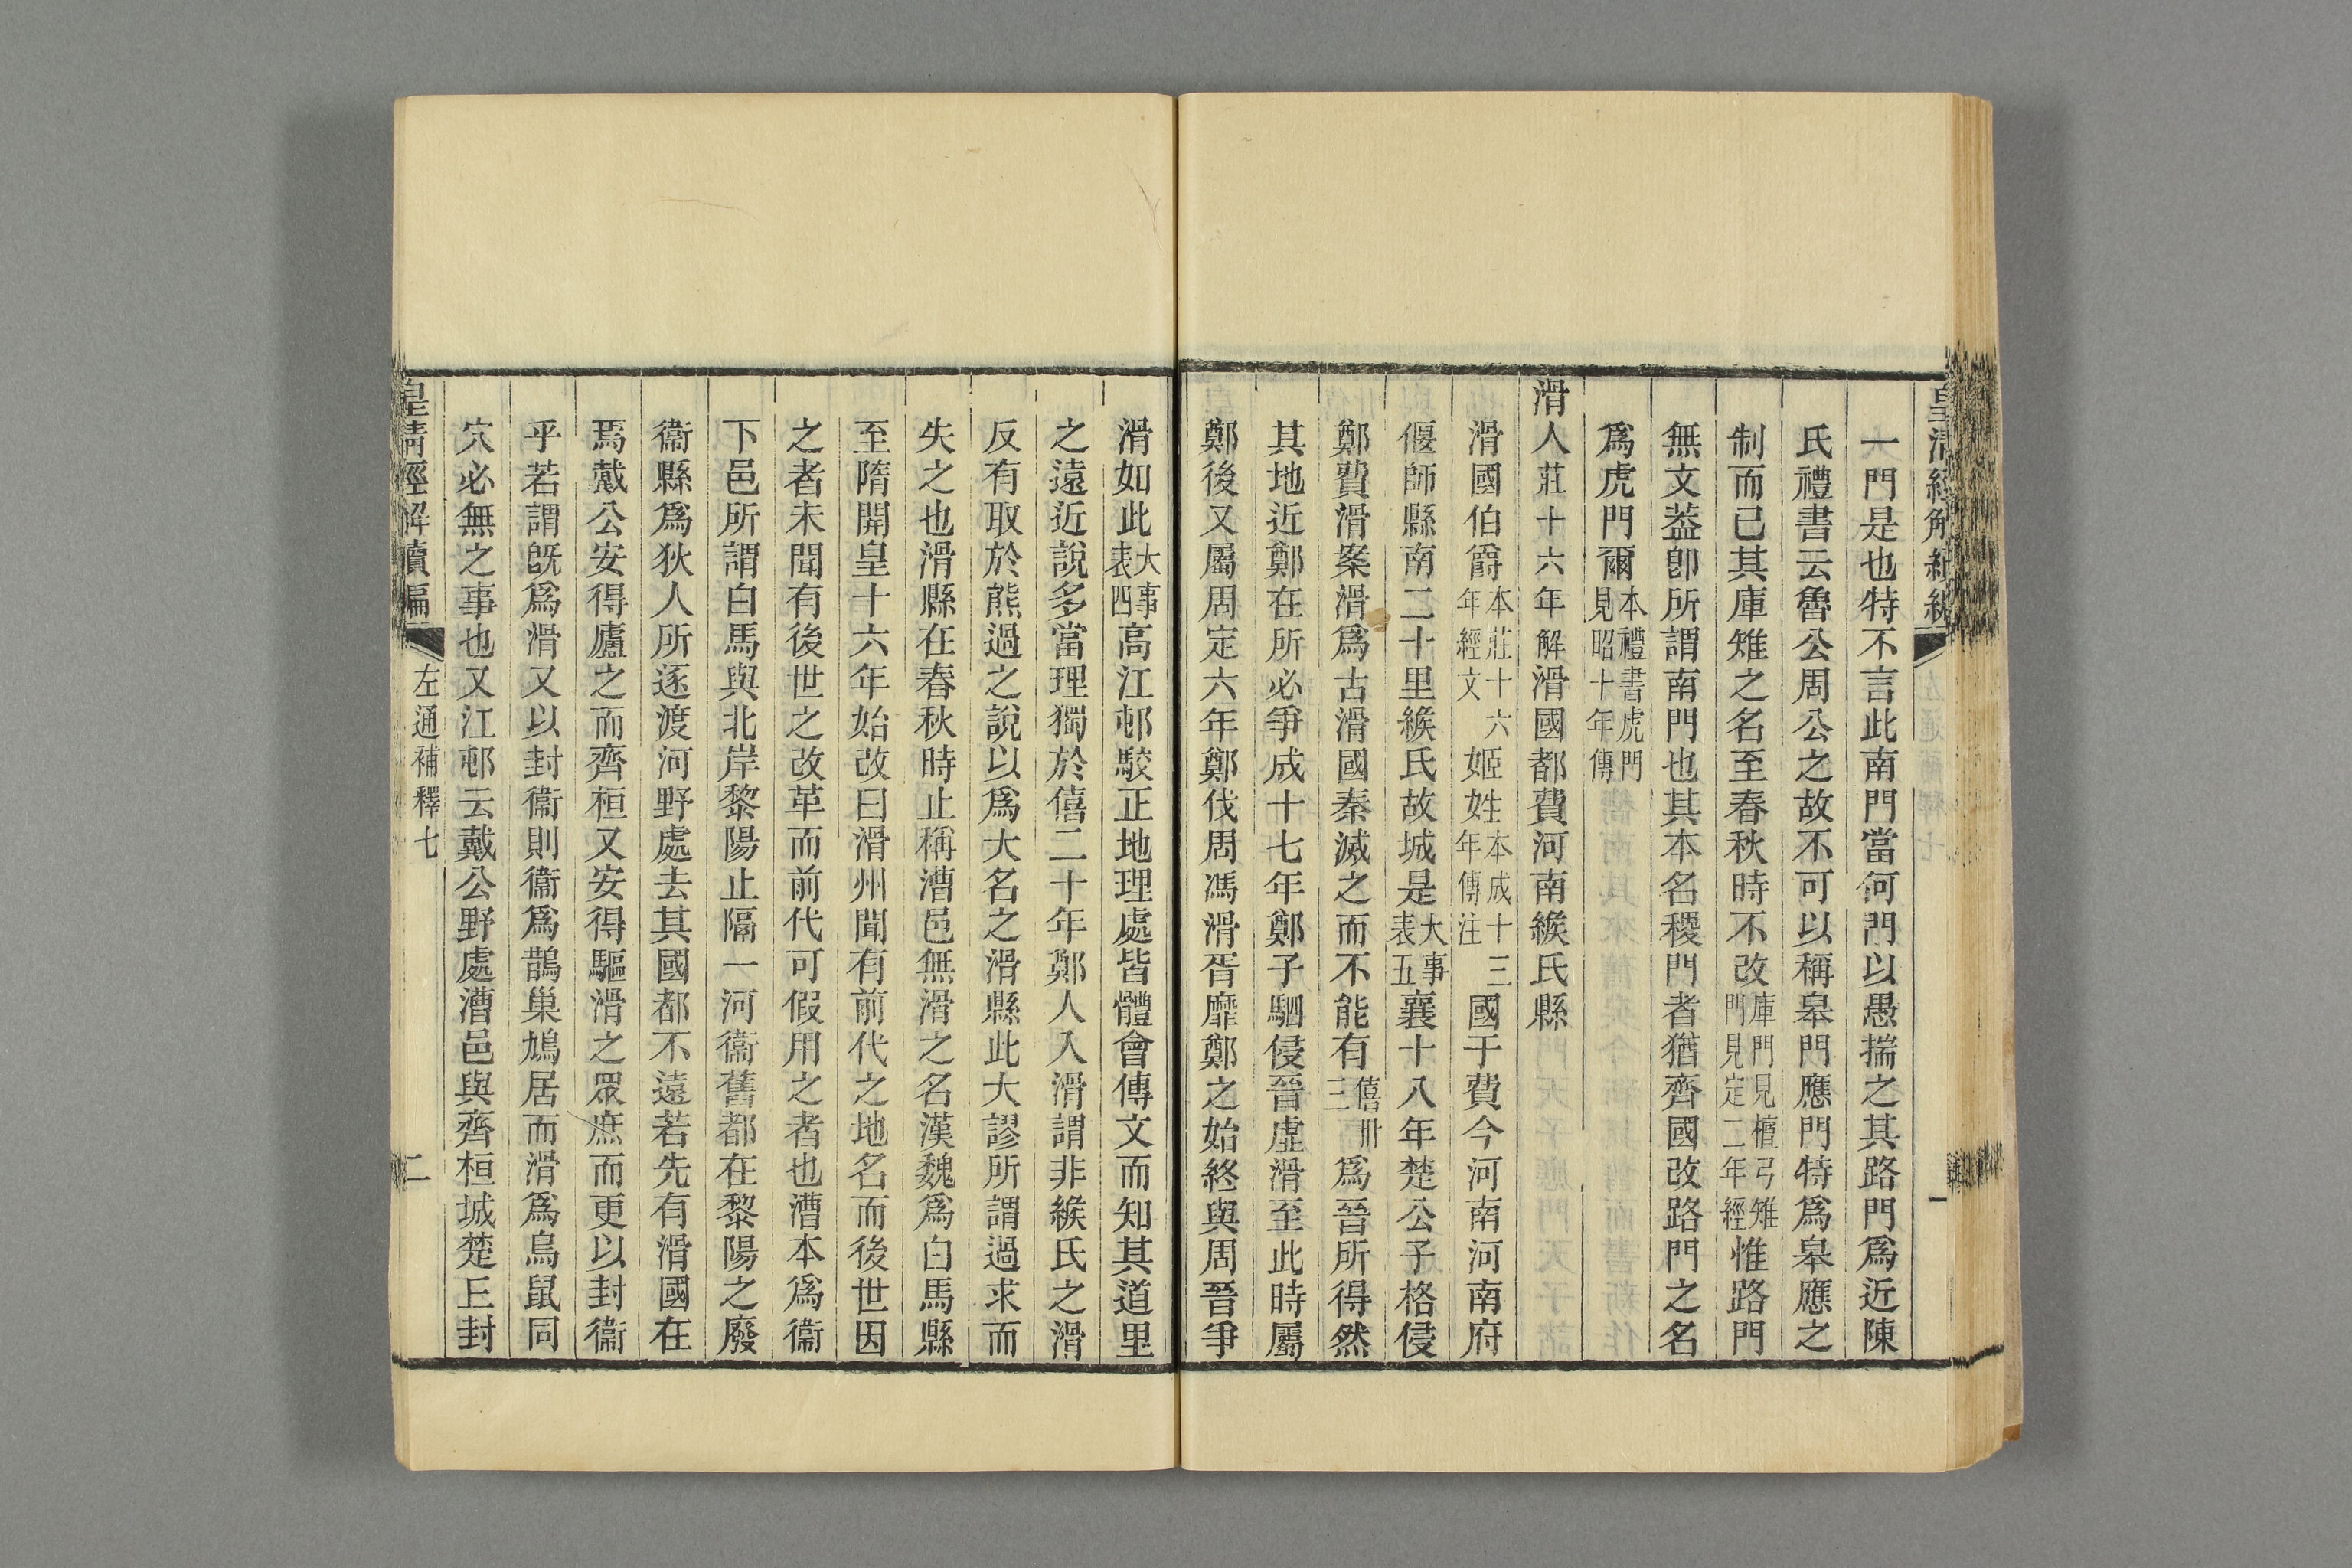 皇清經解續編
一
一門是也特不言此南門當何門以愚揣之其路門爲近陳
氏禮書云魯公周公之故不可以稱皋門應門特爲皋應之
制而已其庫雉之名至春秋時不改庫門見檀弓雉門見定二年經惟路門
無文葢卽所謂南門也其本名稷門者猶齊國改路門之名
爲虎門爾本禮書虎門見昭十年傳
滑人莊十六年解滑國都費河南緱氏縣
滑國伯爵本莊十六年經文姬姓本成十三年傳注國于費今河南河南府
偃師縣南二十里緱氏故城是大事表五襄十八年楚公子格侵
鄭費滑案滑爲古滑國秦滅之而不能有僖卅三爲晉所得然
其地近鄭在所必爭成十七年鄭子駟侵晉虛滑至此時屬
鄭後又屬周定六年鄭伐周馮滑胥靡鄭之始終與周晉爭
滑如此大事表四高江邨駮正地理處皆體會傳文而知其道里
之遠近說多當理獨於僖二十年鄭人入滑謂非緱氏之滑
反有取於熊過之說以爲大名之滑縣此大謬所謂過求而
失之也滑縣在春秋時止稱漕邑無滑之名漢魏爲白馬縣
至隋開皇十六年始改曰滑州聞有前代之地名而後世因
之者未聞有後世之改革而前代可假用之者也漕本爲衞
下邑所謂白馬與北岸黎陽止隔一河衞舊都在黎陽之廢
衞縣爲狄人所逐渡河野處去其國都不遠若先有滑國在
焉戴公安得廬之而齊桓又安得驅滑之眾庶而更以封衞
乎若謂旣爲滑又以封衞則衞爲鵲巢鳩居而滑爲鳥鼠同
穴必無之事也又江邨云戴公野處漕邑與齊桓城楚丘封
皇清經解續編
左通補釋七
二